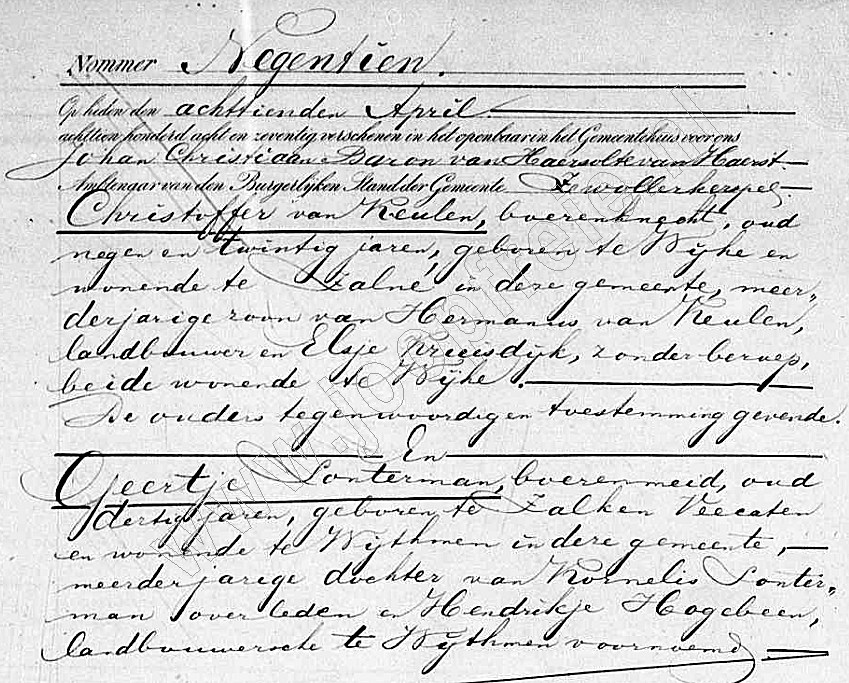 Nommer Negentien.
Op heden den achttienden April.
achttien honderd acht en zeventig verschenen in het openbaar in het Gemeentehuis voor ons
Johan Christiaan Baron van Haersolte van Haerst
Ambtenaar van den Burgerlijken Stand der Gemeente Zwollerkerspel.
Christoffer van Keulen, boerenknecht, oud
negen en twintig jaren, geboren te Wyhe en
wonende te Zalné in deze gemeente, meer„
derjarige zoon van Hermanus van Keulen,
landbouwer en Elsje, zonder beroep,
beide wonende te Wyhe.
De ouders tegenwoordig en toestemming gevende.
En
Geertje Sonterman, boerenmeid, oud
dertig jaren, geboren te Zalk en Veecaten
en wonende te Wythmen in deze gemeente,
meerderjarige dochter van Kornelis Sonter„
man overleden en Hendrikje Hogebeen,
landbouwersche te Wythmen voornoemd
www.joopfreie.nl